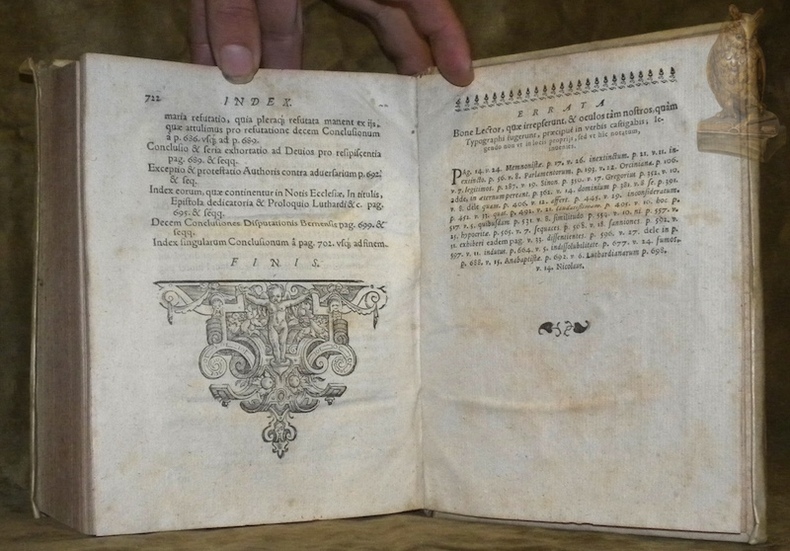 722 INDEX.
maria refutatio, quia pleraq; refutata manent ex ijs,
quæ attulimus pro refutatione decem Conclusionum
à p. 636. vsq; ad p. 689.
Conclusio & seria exhortatio ad Deuios pro resipiscentia
pag. 689. & seqq.
Exceptio & protestatio Authoris contra aduersarium p. 692.
& seq.
Index eorum, quæ continentur in Notis Ecclesiæ, In titulis,
Epistola dedicatoria & Proloquio Luthardi &c. pag.
695. & seqq.
Decem Conclusiones Disputationis Bernensis pag. 699. &
seqq.
Index singularum Conclusionum à pag. 702. vsq; ad finem.
FINIS.
ERRATA
Bone Lector, quæ irrepserunt, & oculos tàm nostros, quàm
Typographi fugerunt, præcipuè in verbis castigabis, le-
gendo non in locis proprijs, sed vt hîc notatum,
inuenies.
Pag. 14. v. 24. Memnonistæ. p. 17. v. 26. inextinctum. p. 21. v. 11. in-
extincto. p. 56. v. 8. Parlamentorum. p. 193. v. 12. Orciniana. p. 106.
v. 7. legitimos. p. 287. v. 19. Sinon. p. 310. v. 17. Gregorius p. 352. v. 10.
adde, in æternum pereant. p. 361. v. 14. dominium p. 381. v. 8 p. 391.
v. 8. dele quam. p. 406. v. 12. affert. p. 445. v. 19. inconsideratum.
p. 451. v. 11. quot. p. 492. v. 21. p. 401. v. 10. hoc p.
517. v. 5. quibusdam p. 531. v. 8. similitudo p. 552. v. 10. ni p. 557. v.
21. hypocritæ. p. 565. v. 7. sequuti. p. 568. v. 18. sanniones. p. 582. v.
11. exhiberi eadem pag. v. 33. dissentientes. p. 596. v. 27. dele in p.
597. v. 11. indutus. p. 664. v. 5. indissolubilitate. p. 677. v. 24. fumos,
p. 688. v. 15. Anabaptistæ. p. 692. v. 6. Luthardianarum p. 698.
v. 14. Nicolaus.